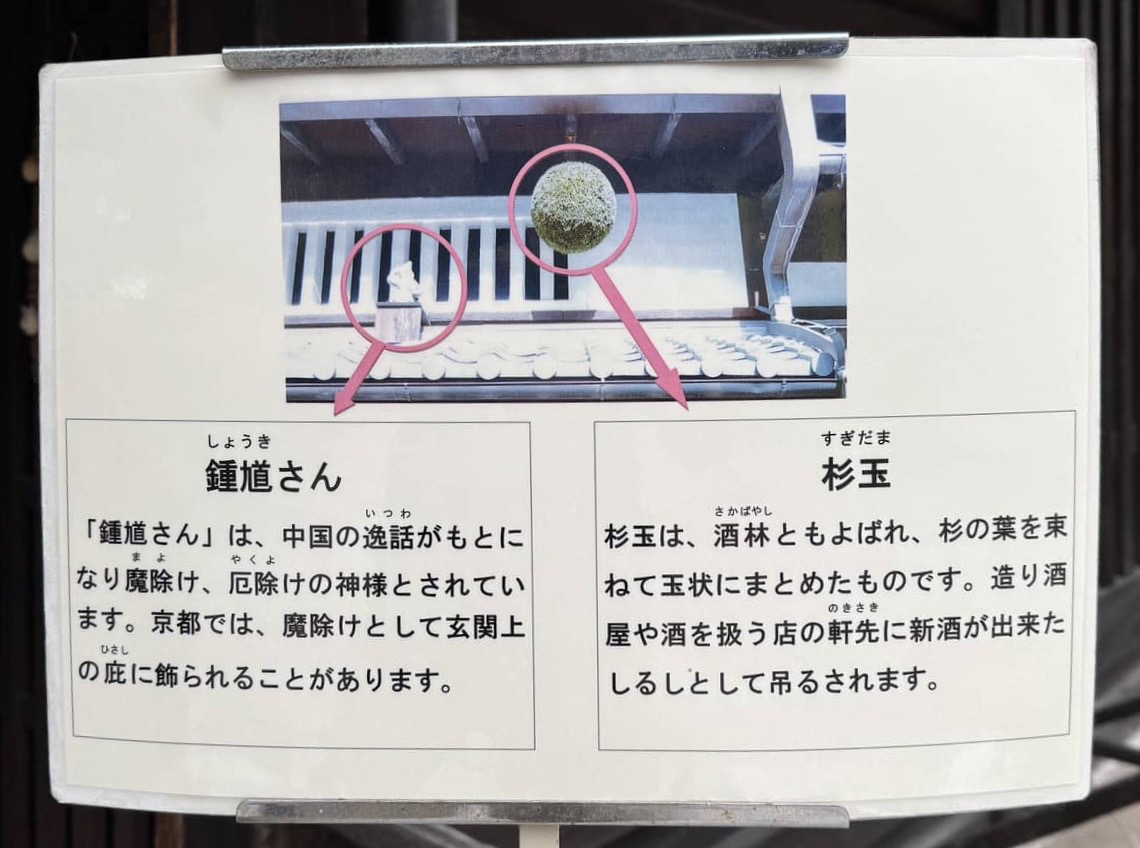 しょうき
鍾馗さん
いつわ
「鍾馗さん」は、中国の逸話がもとに
まよ やくよ
なり魔除け、厄除けの神様とされてい
ます。京都では、魔除けとして玄関上
ひさし
の庇に飾られることがあります。
すぎだま
杉玉
さかばやし
杉玉は、酒林ともよばれ、杉の葉を束
ねて玉状にまとめたものです。造り酒
のきさき
屋や酒を扱う店の軒先に新酒が出来た
しるしとして吊るされます。